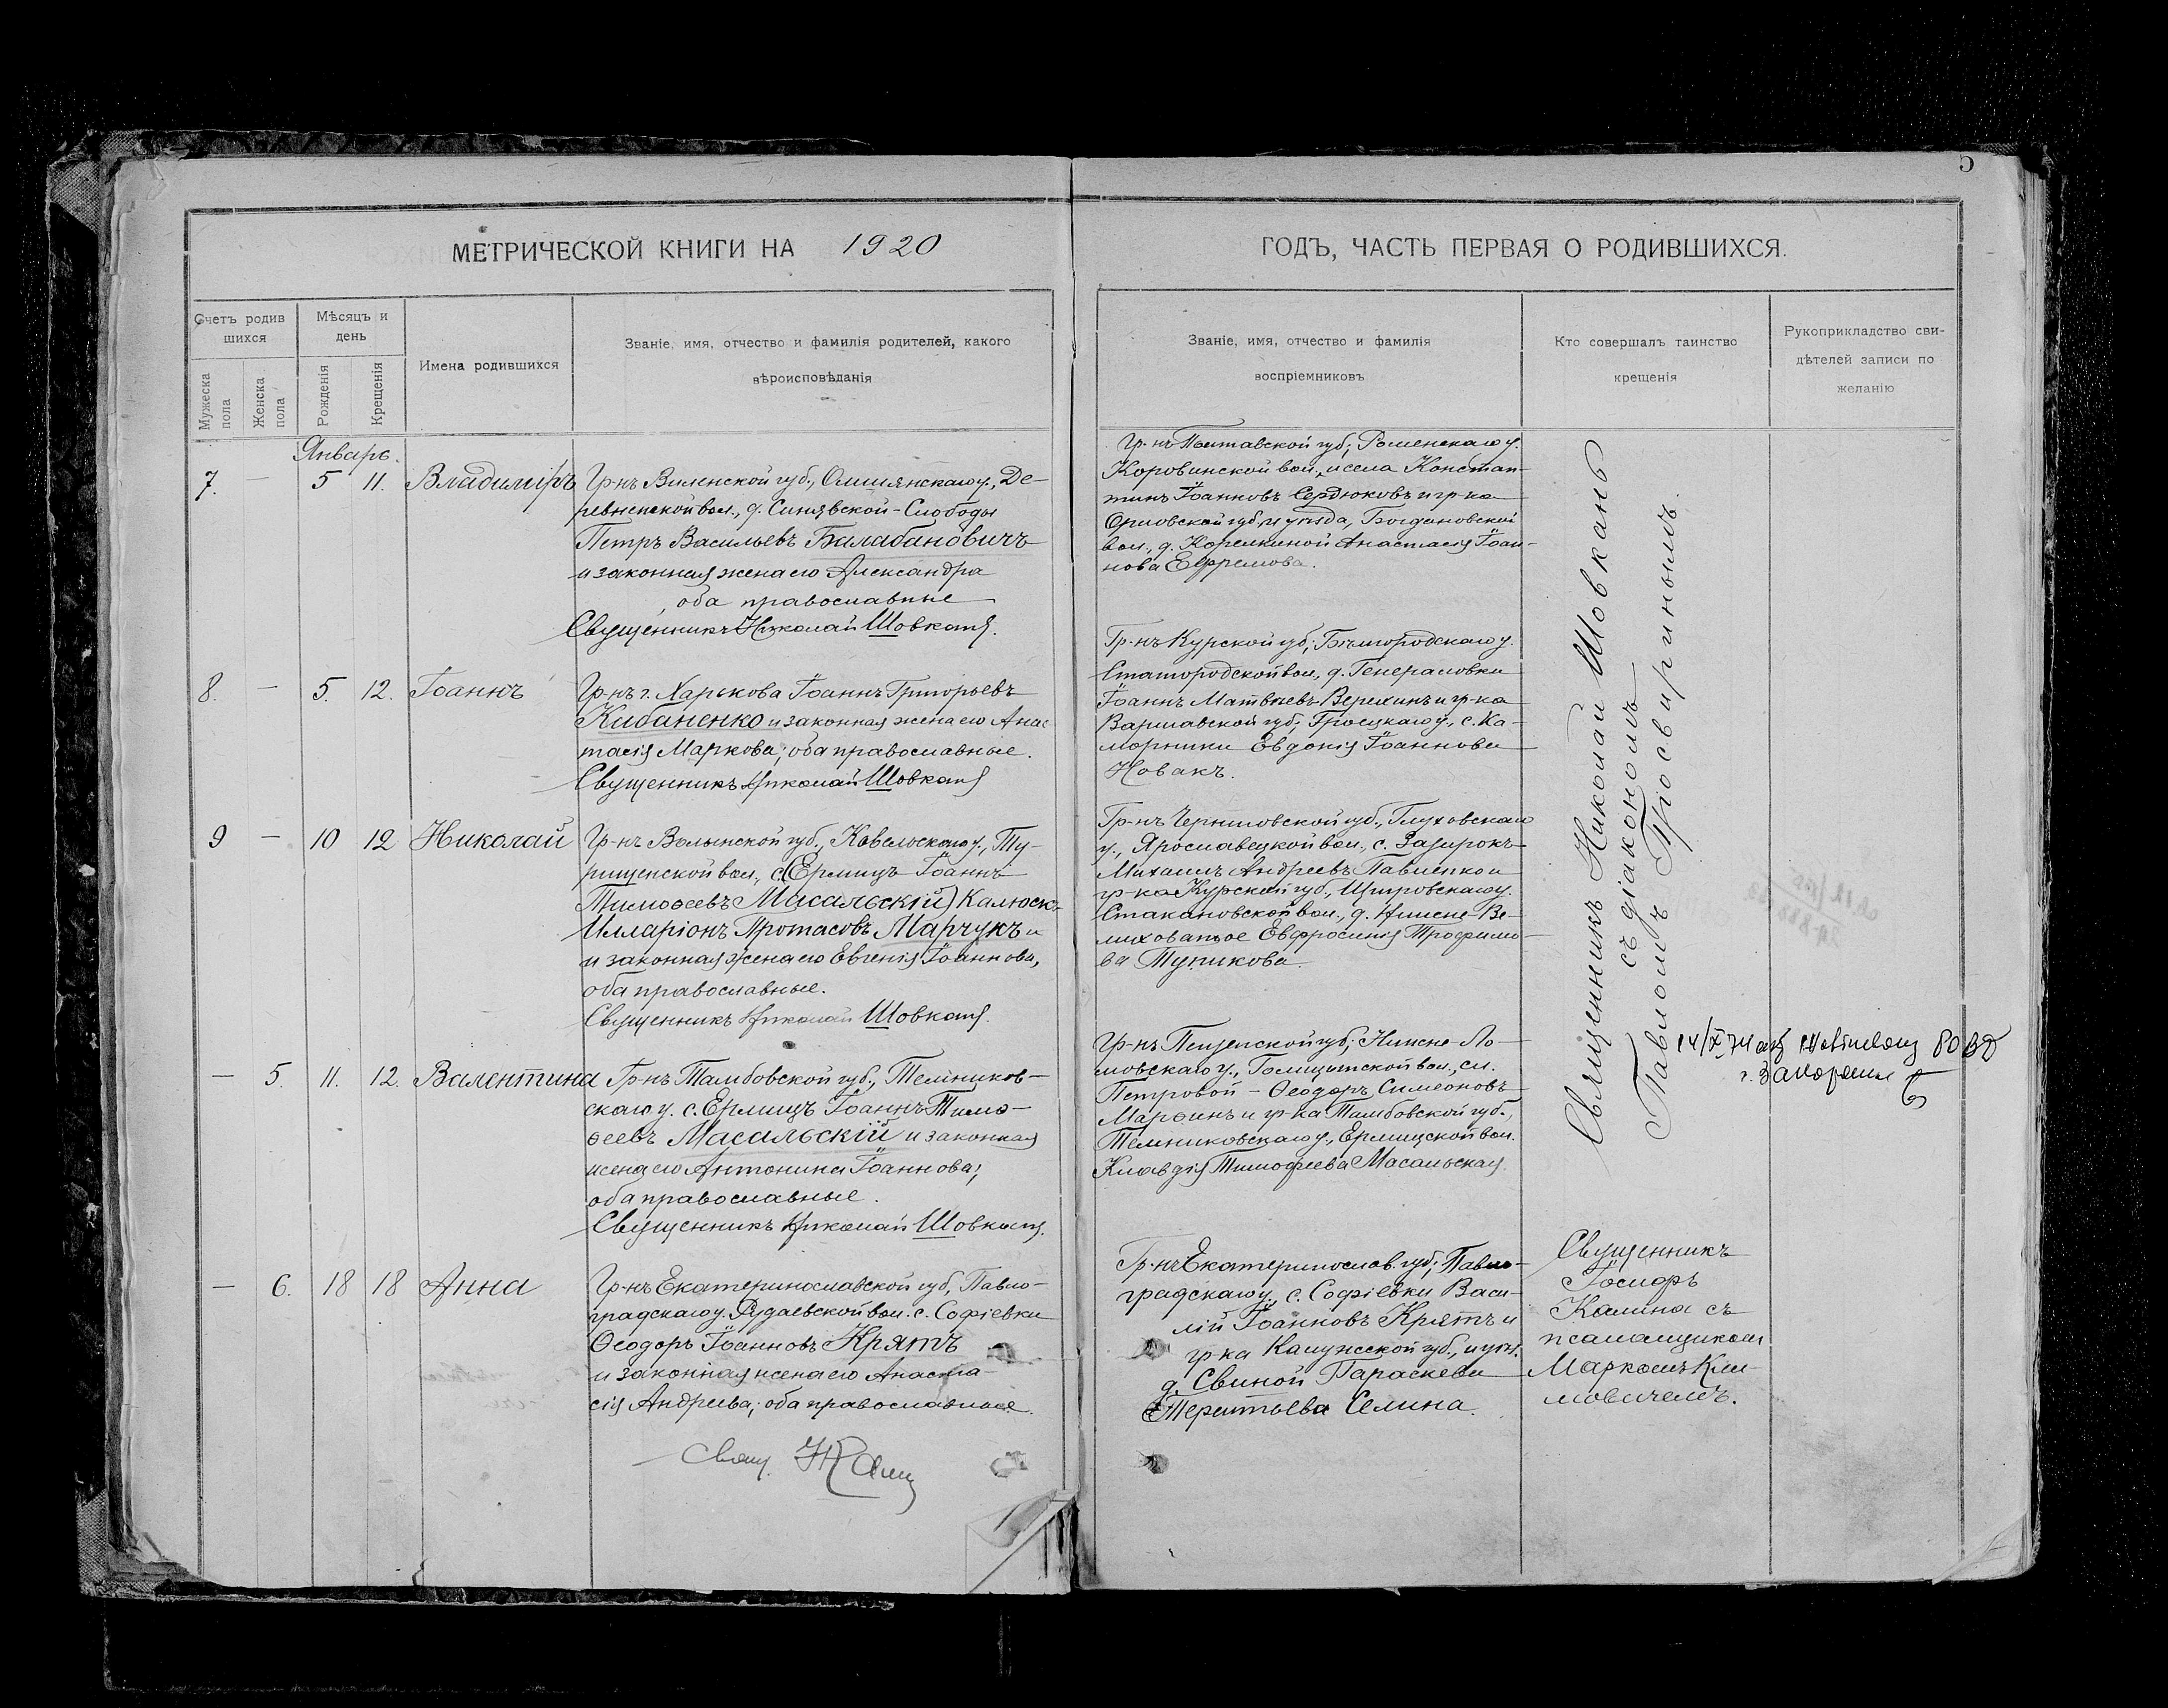 5
МЕТРИЧЕСКОЙ КНИГИ НА 1920
ГОДЪ, ЧАСТЬ ПЕРВАЯ О РОДИВШИХСЯ.
Счетъ родив
шихся
Мужеска
пола
Женска
пола
Мѣсяцъ и
день
Рожденія
Крещенія
Имена родившихся
Званіе, имя, отчество и фамилія родителей, какого
вѣроисповѣданія
Званіе, имя, отчество и фамилія
воспріемниковъ
Кто совершалъ таинство
крещенія
Рукоприкладство сви-
дѣтелей записи по
желанію
Январь.
7. — 5 11. Владиміръ
Гр-нъ Виленской губ., Ошмянскаго у., Де-
ревненской вол., д. Синявской-Слободы
Петръ Васильевъ Балабановичъ
и законная жена его Александра
оба православные
Священникъ Николай Шовкань.
Гр-нъ Полтавской губ., Роменскаго у.
Коровинской вол., и села Констан-
тинъ Іоанновъ Сердюковъ и гр-ка
Орловской губ. и уѣзда, Богдановской
вол., д. Корелкиной Анастасія Іоан-
нова Ефремова.
8. — 5. 12. Іоаннъ
Гр-нъ г. Харькова Іоаннъ Григорьевъ
Кибаненко и законная жена его Анас
тасія Маркова; оба православные.
Священникъ Николай Шовкань
Гр-нъ Курской губ., Бѣлгородскаго у.
Старогородской вол., д. Генераловки
Іоаннъ Матвѣевъ Верехинъ и гр-ка
Варшавской губ., Гроецкаго у., с. Ка-
морники Евдокія Іоаннова
Новакъ.
9 — 10 12 Николай
Гр-нъ Волынской губ., Ковельскаго у., Ту-
рищенской вол., с. (Ермишъ Іоаннъ
Тимоѳеевъ Масальскій)
Илларіонъ Протасовъ Марчукъ и
и законная жена его Евгенія Іоаннова,
оба православные.
Священникъ Николай Шовкань.
Гр-нъ Черниговской губ., Глуховскаго
у., Ярославецкой вол., с. Зазирокъ
Михаилъ Андреевъ Павленко и
гр-ка Курской губ., Щигровскаго у.
Стакановской вол., д. Нижне-Ве-
Евфросинія Трофимо-
ва Тупикова.
— 5. 11. 12. Валентина
Гр-нъ Тамбовской губ., Темников-
скаго у. с. Ермишъ Іоаннъ Тимо-
ѳеевъ Масальскій и законная
жена его Антонина Іоаннова;
оба православные.
Священникъ Николай Шовкань.
Гр-нъ Пензенской губ., Нижне-Ло-
мовскаго у., Голицинской вол., сл.
Петровой — Ѳеодоръ Симеоновъ
Марѳинъ и гр-ка Тамбовской губ.,
Темниковскаго у., Ермишской вол.
Клавдія Тимофеева Масальская.
Священникъ Николай Шовкань
съ діакономъ
Павломъ
— 6. 18 18 Анна
Гр-нъ Екатеринославской губ., Павло-
градскаго у. вол. с. Софіевки
Ѳеодоръ Іоанновъ Крятъ
и законная жена его Анаста-
сія Андреева; оба православные.
Свящ.
Гр-нъ Екатеринослав. губ., Павло-
градскаго у., с. Софіевки Васи-
лій Іоанновъ Крятъ и
гр-ка Калужской губ., и уѣз.
д. Свиной Параскева
Терентьева Селина.
Священникъ
Іосифъ
Калина съ
псаломщикомъ
Маркомъ Кли-
мовичемъ.